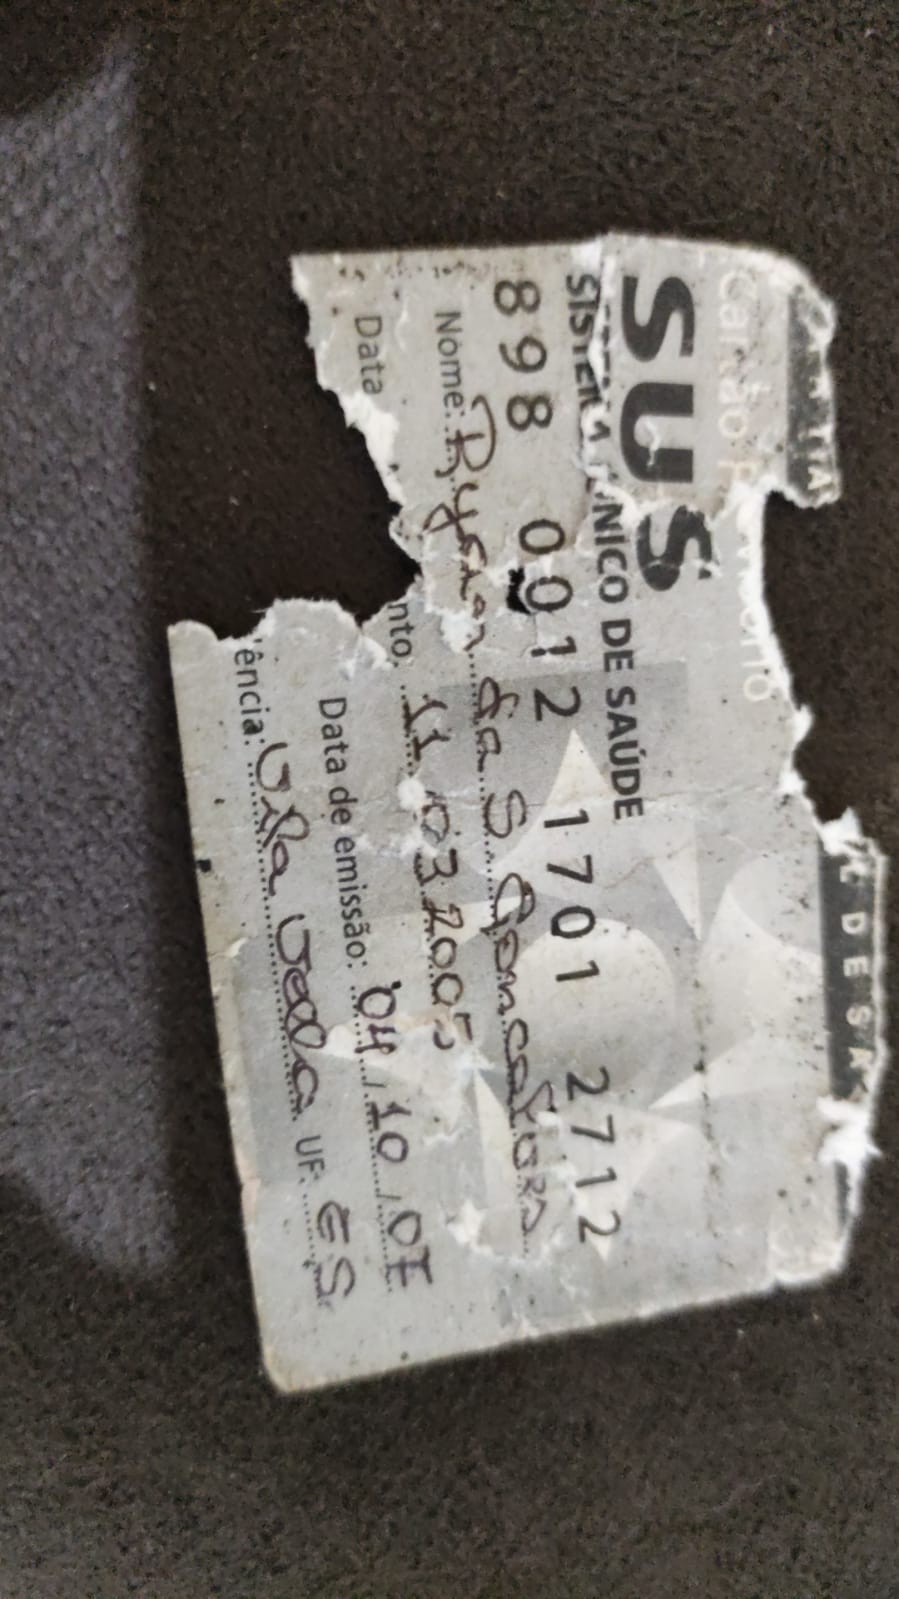 SUS
SISTEMA ÚNICO DE SAÚDE
898 0012 1701 2712
Nome: Ryan da S. Goncalves
Data nto. 11 03 2005
Data de emissão: 04.10.07
ência: Vila Velha UF: ES